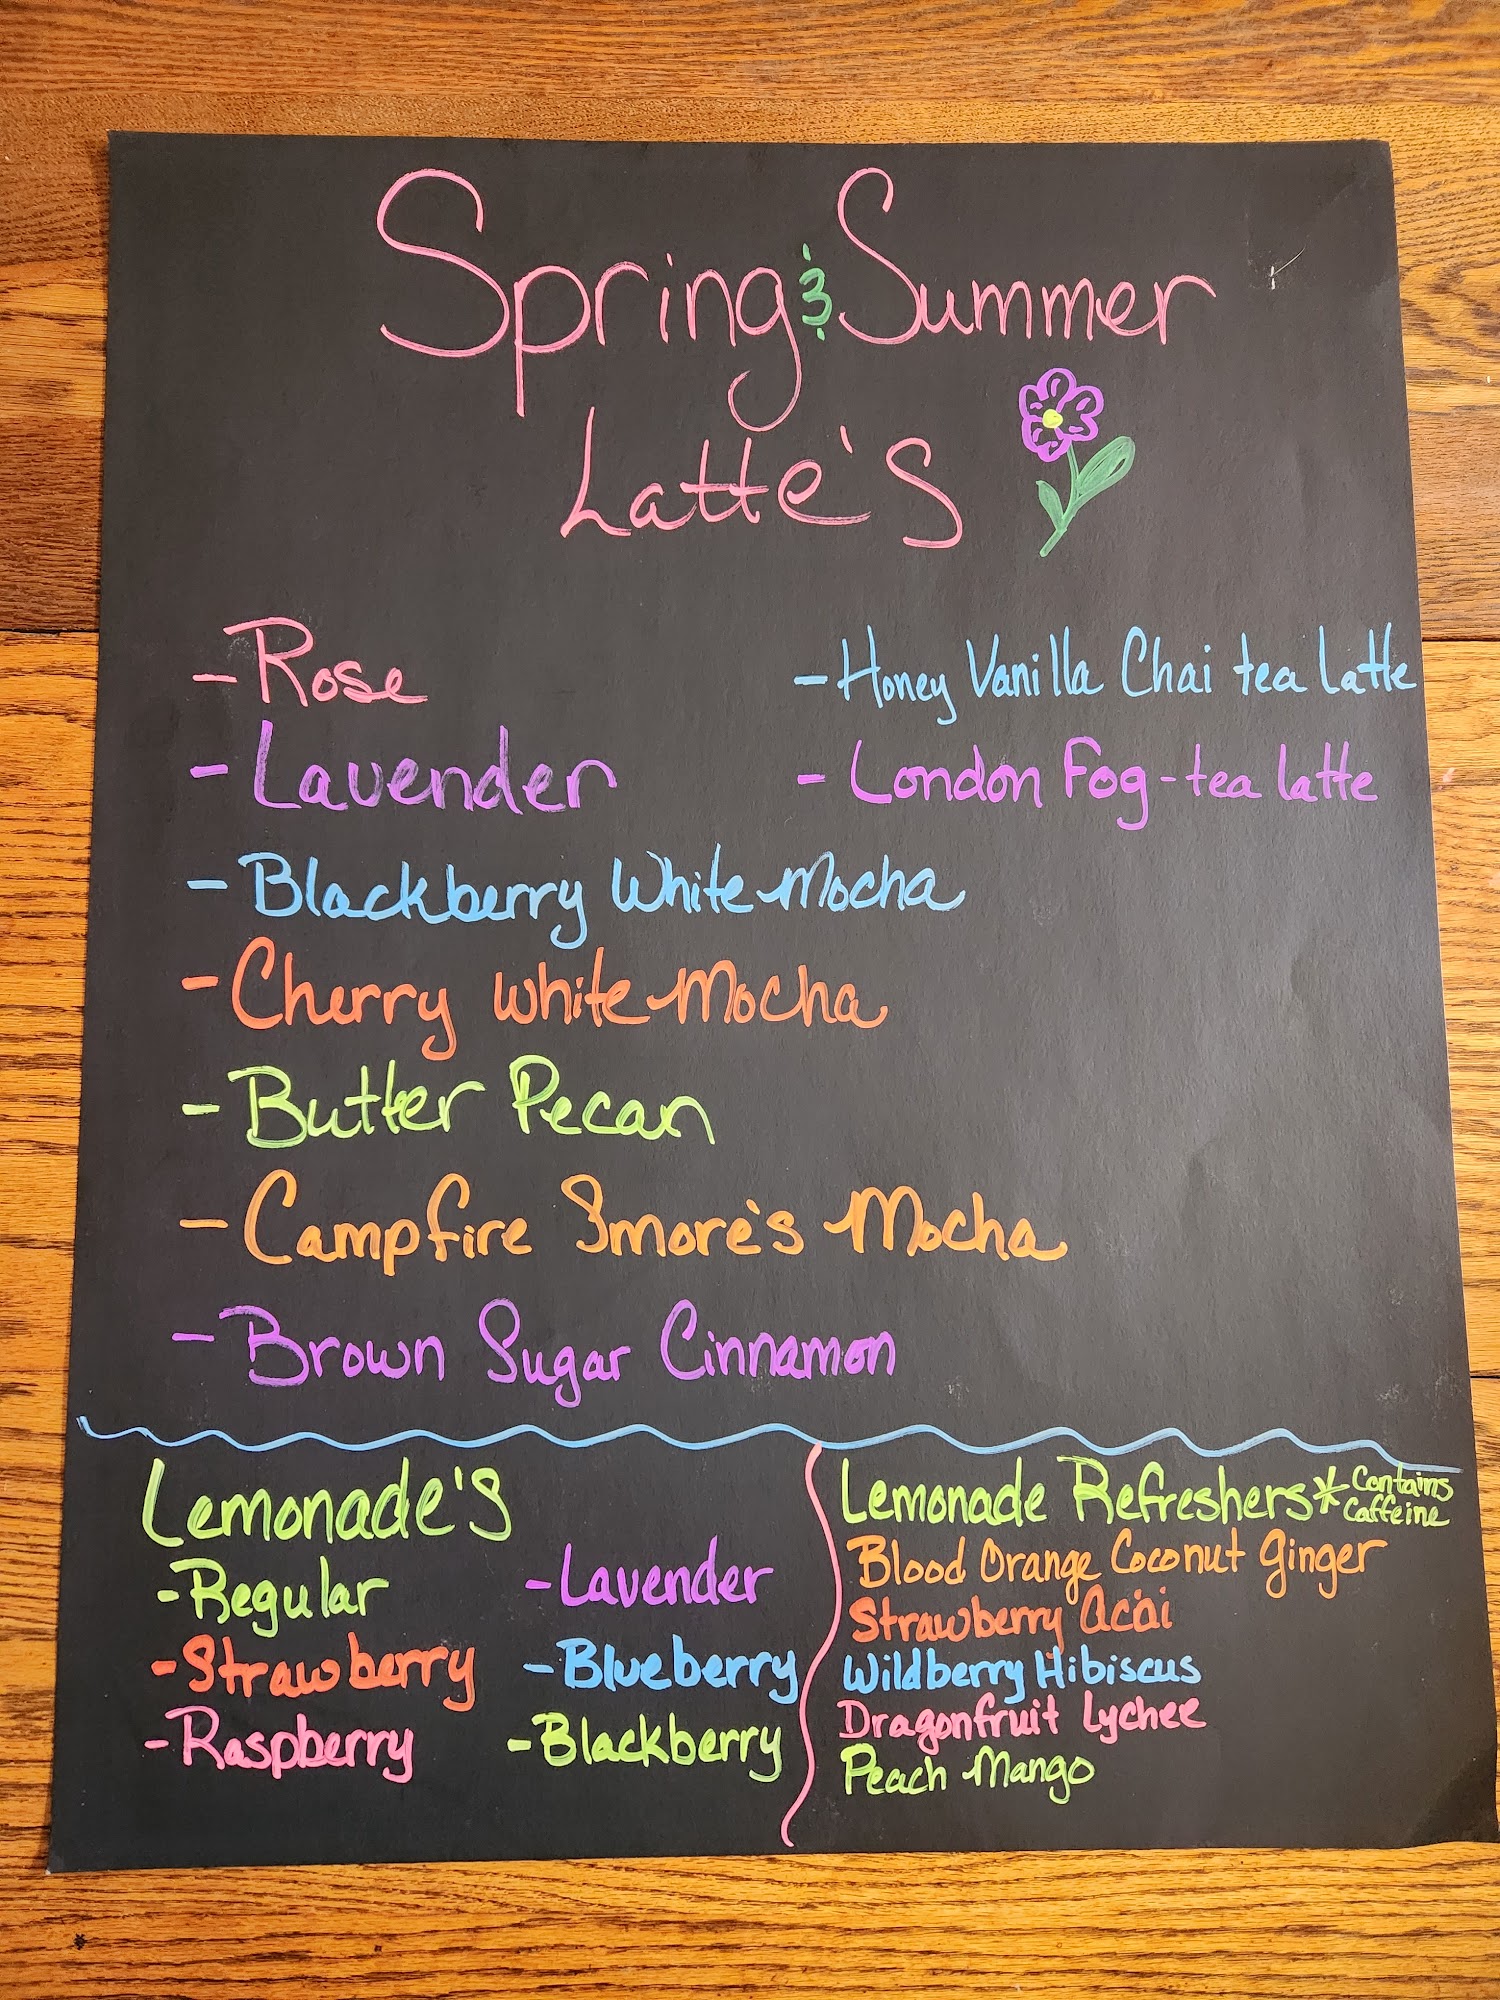 Spring & Summer
Latte's
- Rose
- Lavender
- Blackberry White Mocha
- Cherry White Mocha
- Butter Pecan
- Campfire Smore's Mocha
- Brown Sugar Cinnamon
- Honey Vanilla Chai tea Latte
- London Fog - tea latte
Lemonade's
- Regular
- Strawberry
- Raspberry
- Lavender
- Blueberry
- Blackberry
Lemonade Refreshers * Contains
Caffeine
Blood Orange Coconut Ginger
Strawberry Acai
Wildberry Hibiscus
Dragonfruit Lychee
Peach Mango